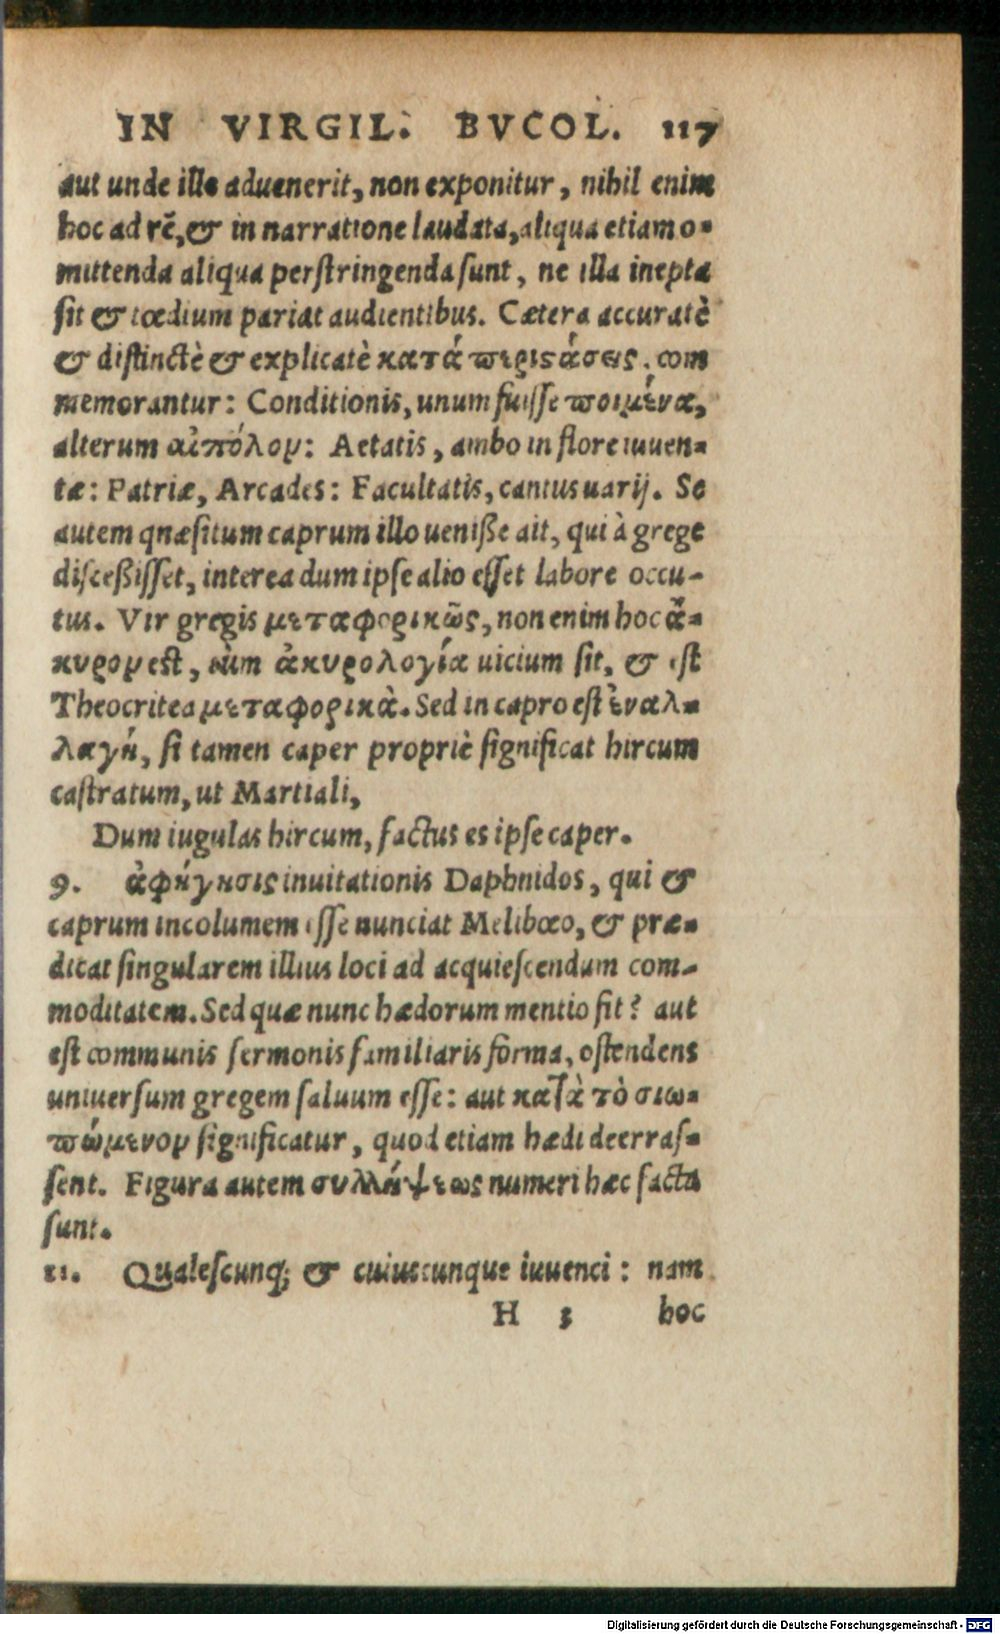 IN VIRGIL. BVCOL. 117
aut unde ille aduenerit, non exponitur, nihil enim
hoc ad rẽ, & in narratione laudata, aliqua etiam o-
mittenda aliqua perstringenda sunt, ne illa inepta
sit & tædium pariat audientibus. Cætera accuratè
& distinctè & explicatè κατά περιςάσεις. com
memorantur: Conditionis, unum fuisse ποιμένα,
alterum αἰπόλον: Aetatis, ambo in flore iuuen-
tæ: Patriæ, Arcades: Facultatis, cantus uarij. Se
autem qnæsitum caprum illo uenisse ait, qui à grege
discessisset, interea dum ipse alio esset labore occu-
tus. Vir gregis μεταφορικῶς, non enim hoc ἄ-
κυρον est, cùm ἀκυρολογία uicium sit, & est
Theocritea μεταφορικὰ. Sed in capro est ἐναλ-
λαγή, si tamen caper propriè significat hircum
castratum, ut Martiali,
Dum iugulas hircum, factus es ipse caper.
9. ἀφήγησις inuitationis Daphnidos, qui &
caprum incolumem esse nunciat Melibœo, & præ-
dicat singularem illius loci ad acquiescendum com-
moditatem. Sed quæ nunc hædorum mentio fit? aut
est communis sermonis familiaris forma, ostendens
uniuersum gregem saluum esse: aut κατὰ τὸ σιω-
πώμενον significatur, quod etiam hædi deerras-
sent. Figura autem συλλήψεως numeri hæc facta
sunt.
11. Qualescunq; & cuiuscunque iuuenci: nam
H 3 hoc
Digitalisierung gefördert durch die Deutsche Forschungsgemeinschaft - DFG